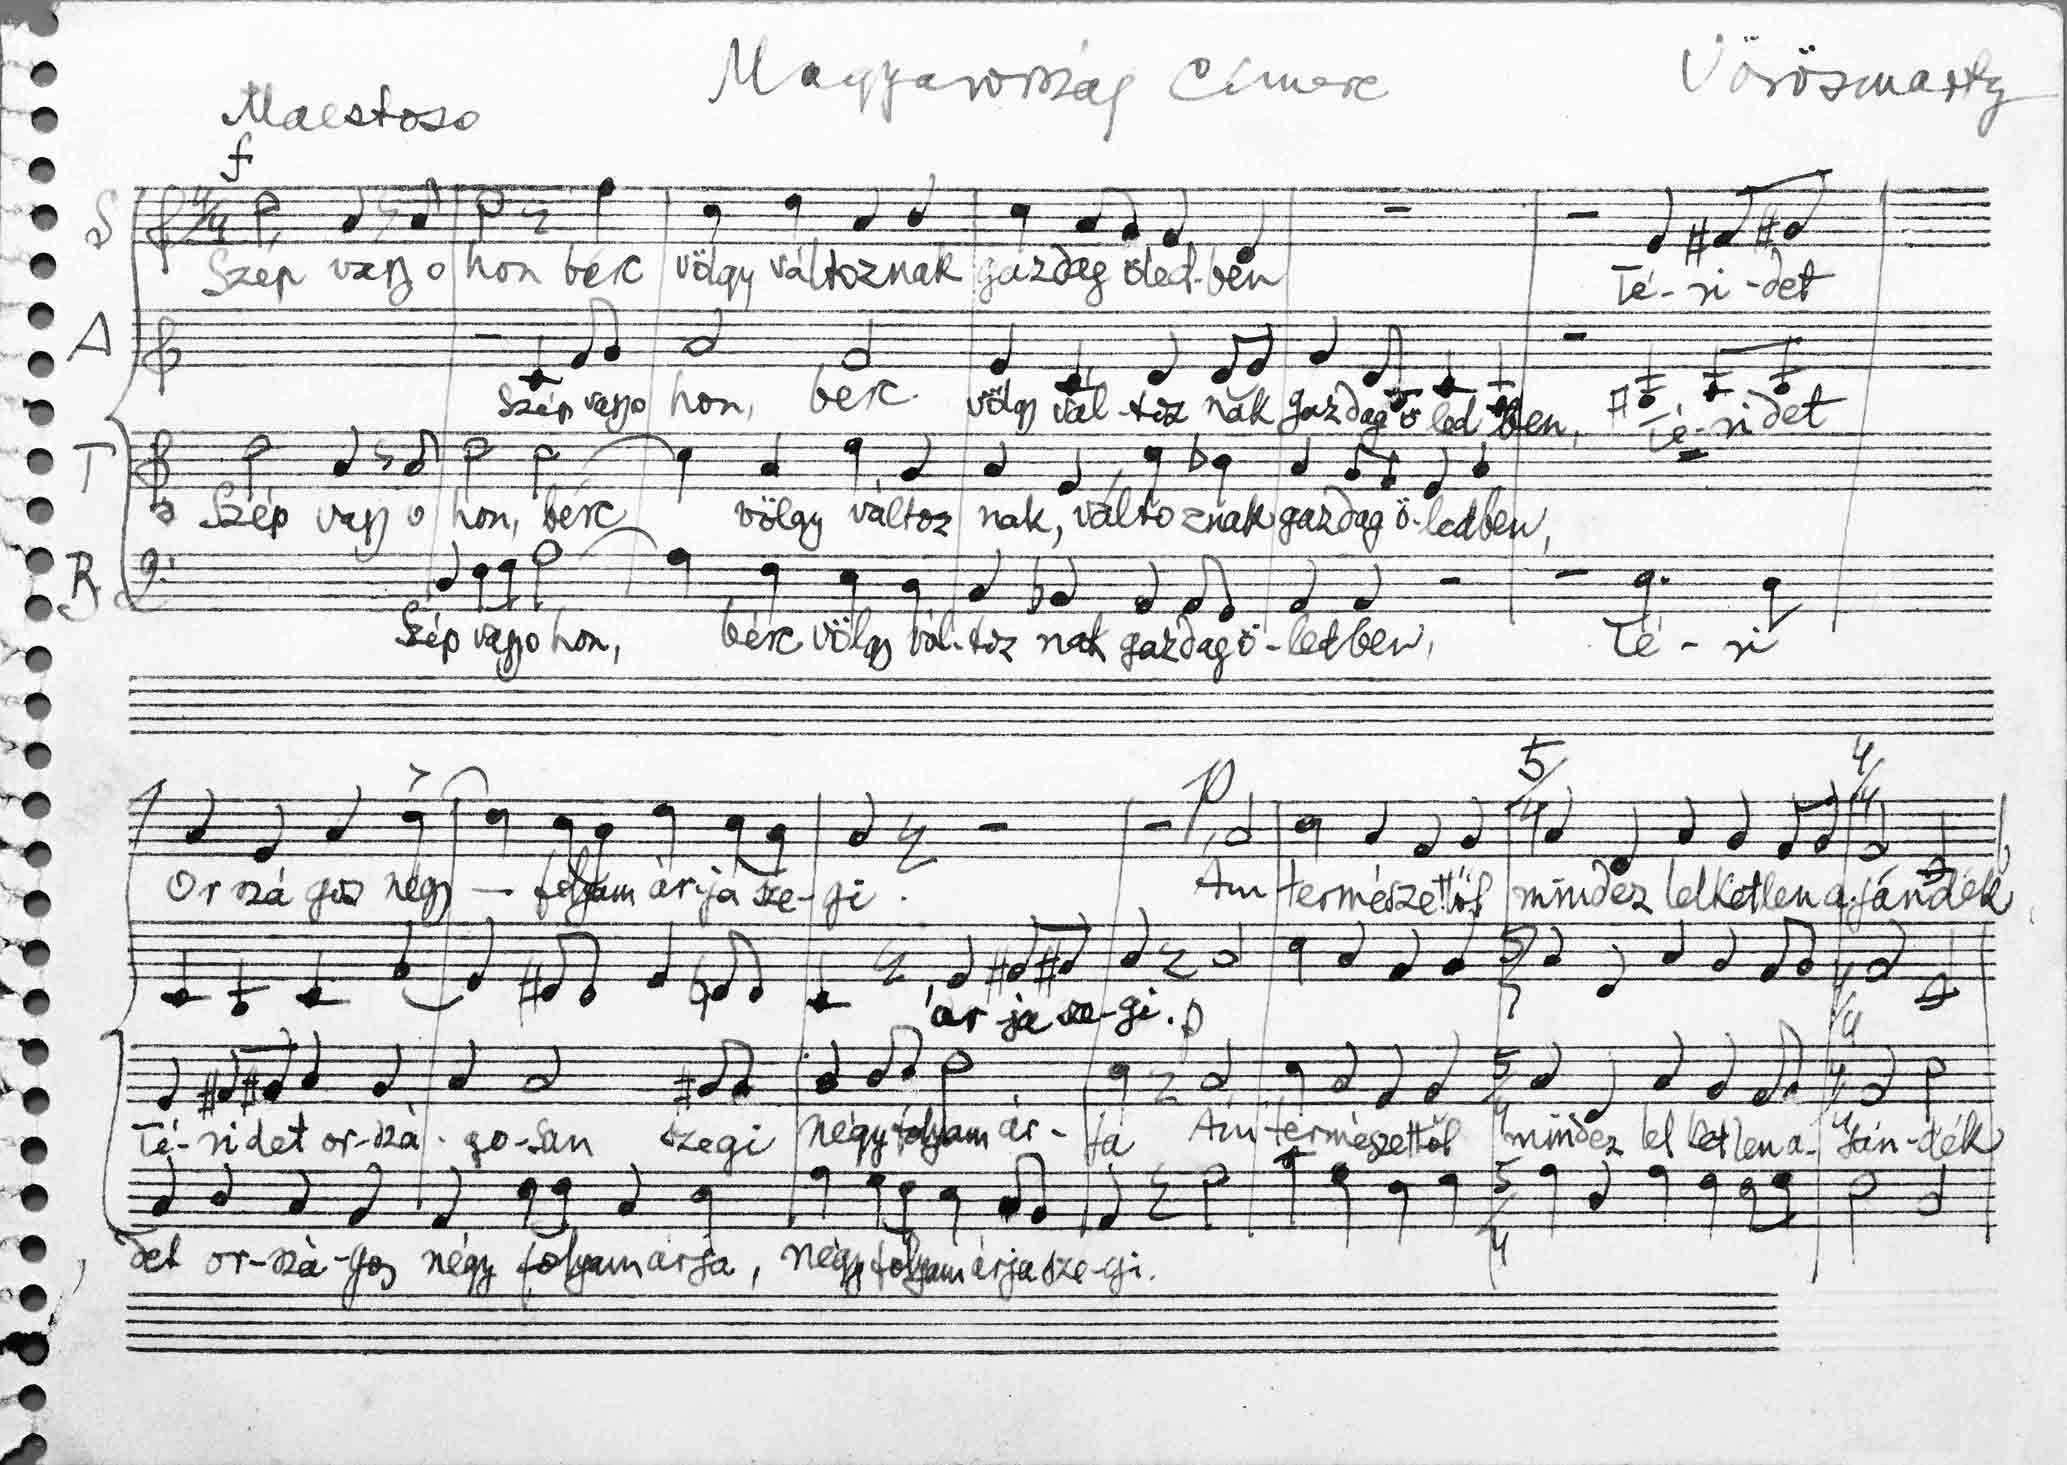 Magyarország Címere
Vörösmarty
Maestoso
f
S
4/4
Szép vagy o hon bérc völgy változnak gazdag öled-ben Té-ri-det
A
Szép vagy o hon, bérc völgy vál-toz nak gazdag ö led ben, Té-ri det
T
Szép vagy o hon, bérc völgy változ nak, változnak gazdag ö-ledben,
B
Szép vagy o hon, bérc völgy vál-toz nak gazdag ö-ledben, Té-ri
5/4 4/4
p
Or szá gos négy - folyam ár-ja sze-gi. Am természettől mindez lelketlen a-jándék
5/4 4/4
ár-ja sze-gi. p
5/4 4/4
Té-ridet or-szá-go-san szegi négy folyam ár-ja Am természettől mindez lel ketlen a-ján-dék
5/4
det or-szá-gos négy folyam árja, négy folyam árja sze-gi.